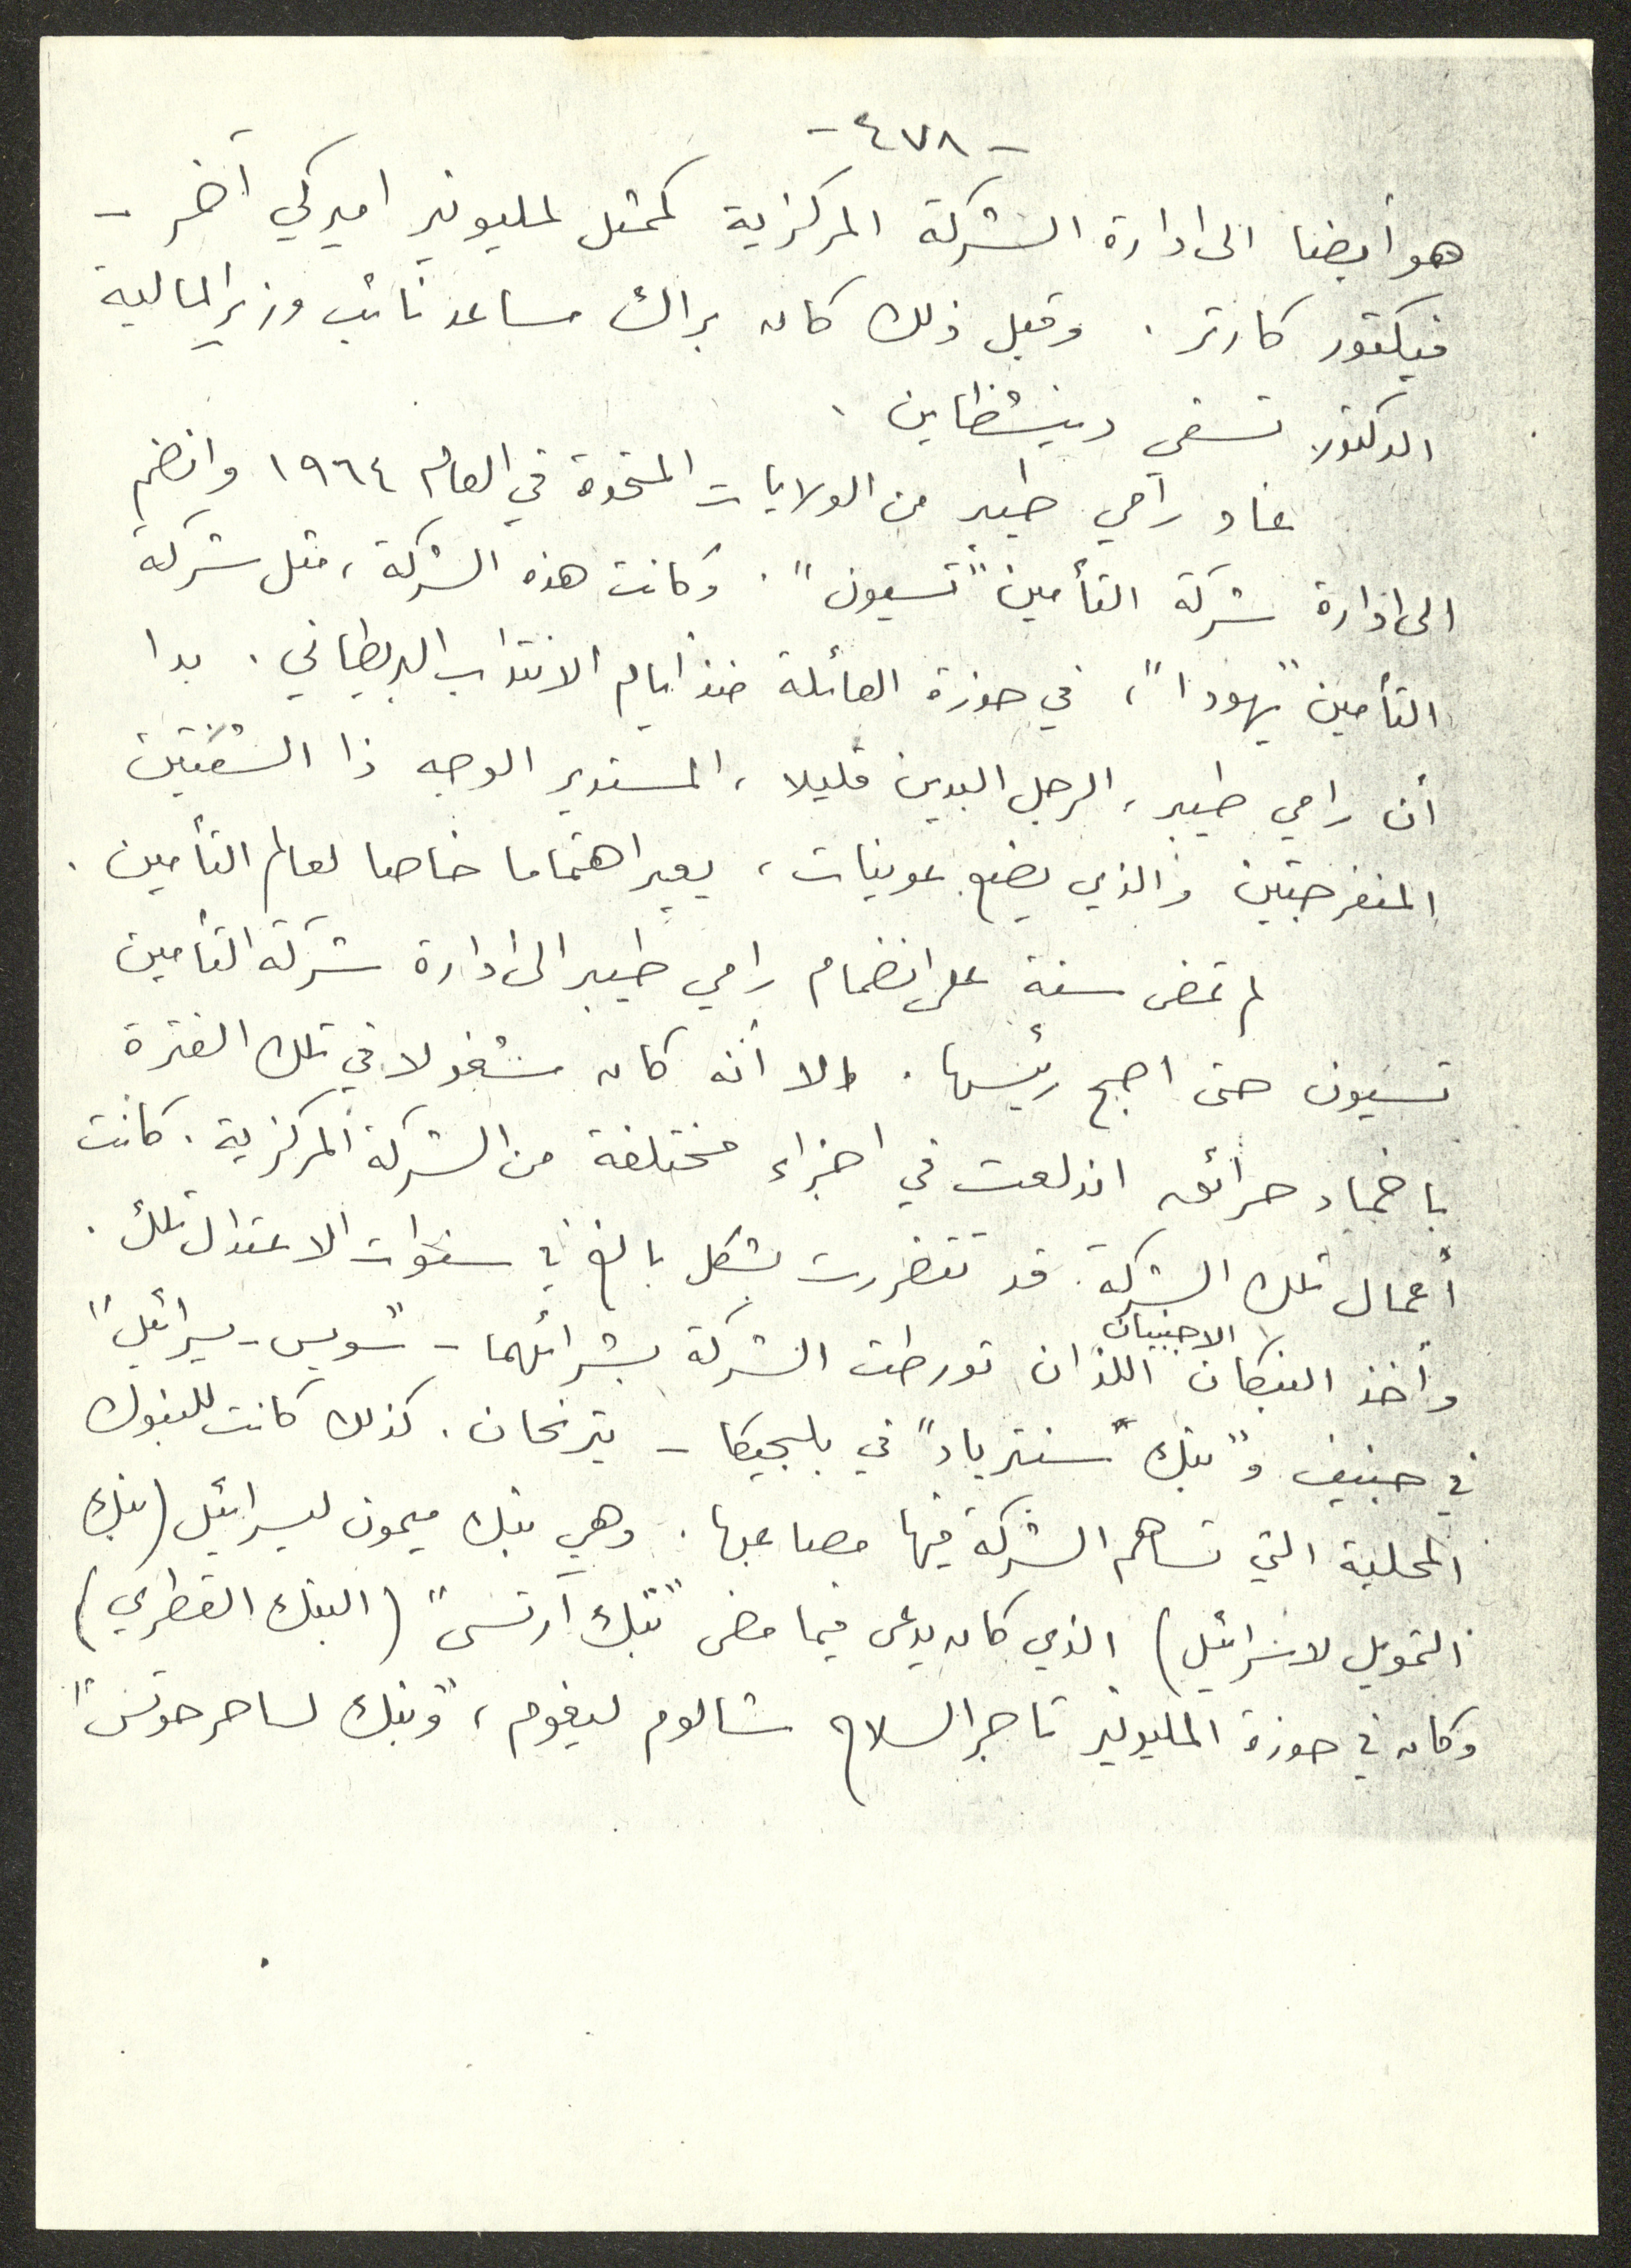 -٤٧٨-
هو أيضا الى ادارة الشركة المركزية كممثل لمليونير اميركي آخر -
فيكتور كارتر . وقبل ذلك كان براك مساعد نائب وزير المالية
الدكتور تسفي دينشطاين .
عاد رامي طيبر من الولايات المتحدة في العام ١٩٦٤ وانضم
الى ادارة شركة التأمين "تسيون" . وكانت هذه الشركة ، مثل شركة
التأمين "يهودا" ، في حوزة العائلة منذ أيام الانتداب البريطاني . بدا
أن رامي طيبر ، الرجل البدين قليلا ، المستدير الوجه ذا الشفتين
المنفرجتين والذي يضع عوينات ، يعير اهتماما خاصا لعالم التأمين .
لم تمض سنة على انضمام رامي طيبر الى ادارة شركة التأمين
تسيون حتى اصبح رئيسها . الا أنه كان مشغولا في تلك الفترة
باخماد حرائق اندلعت في اجزاء مختلفة من الشركة المركزية . كانت
أعمال تلك الشركة قد تضررت بشكل بالغ في سنوات الاعتدال تلك .
الاجنبيان
وأخذ البنكان اللذان تورطت الشركة بشرائهما - "سويس - يسرائيل"
في جنيف و"بنك سنترياد" في بلجيكا - يترنحان . كذلك كانت للبنوك
المحلية التي تساهم الشركة فيها مصاعبها . وهي بنك ميمون ليسرائيل (بنك
التمويل لاسرائيل) الذي كان يدعى فيما مضى "بنك آرتسى" (البنك القطري)
وكان في حوزة المليونير تاجر السلاح شالوم ليفوم ، "وبنك لساحر حوتس"